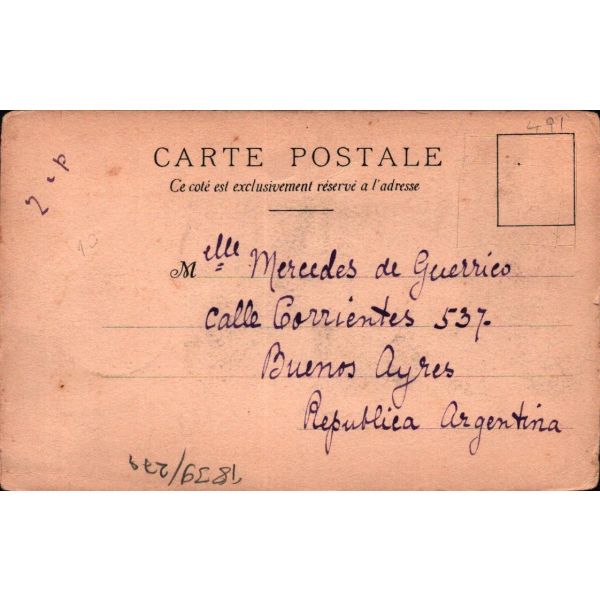 491
2 "p
CARTE POSTALE
Ce coté est exclusivement réservé a l'adresse
Melle Mercedes de Guerrico
Calle Corrientes 537
Buenos Ayres
Republica Argentina
1839/279